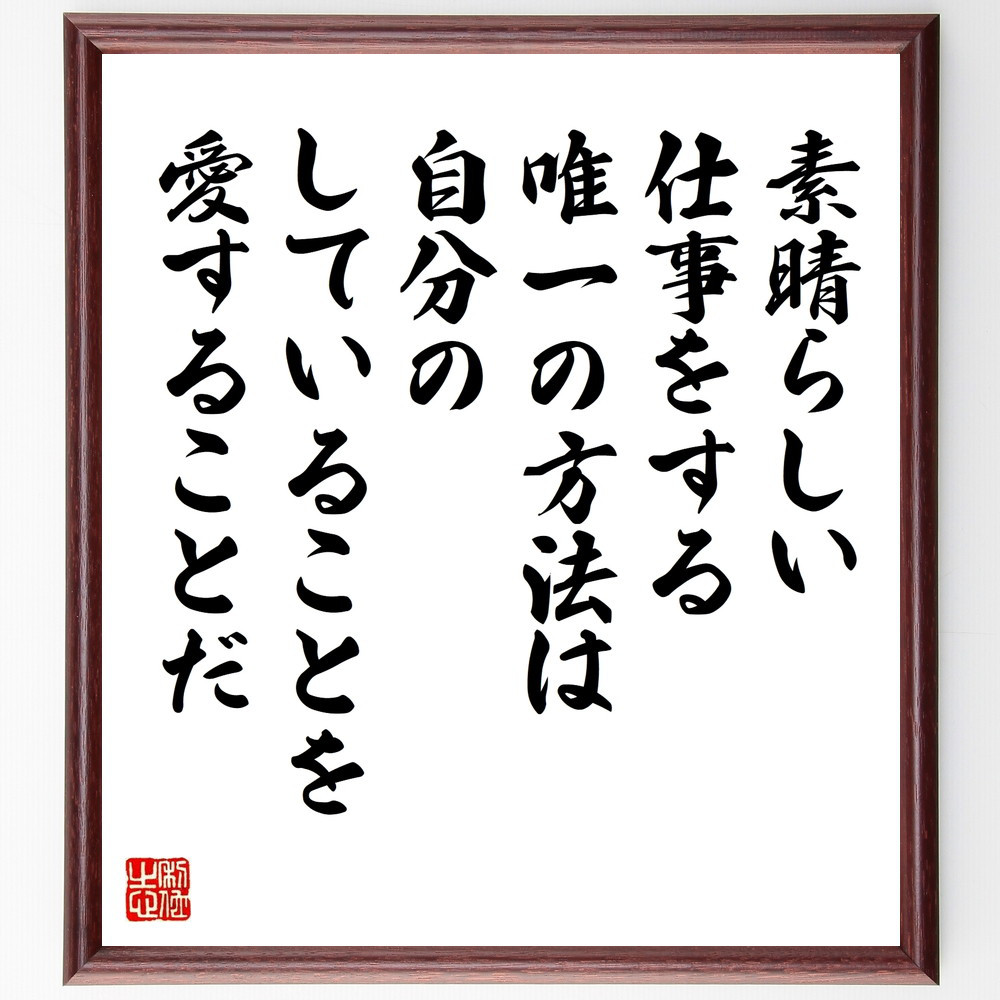 素晴らしい
仕事をする
唯一の方法は
自分の
していることを
愛することだ